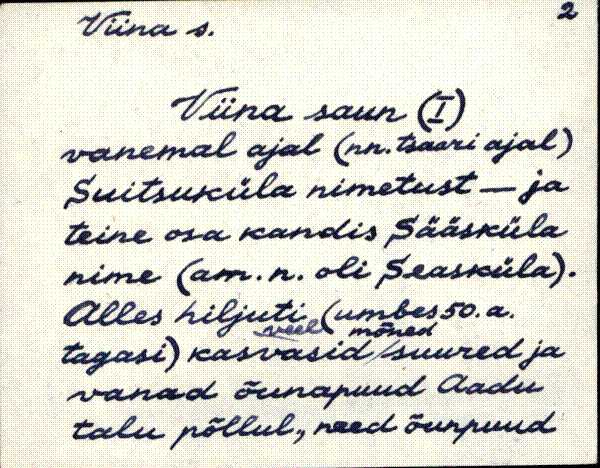 2
Viina s.
Viina saun (I)
vanemal ajal (nn. tsaari ajal)
Suitsuküla nimetust — ja
teine osa kandis Sääsküla
nime (am. n. oli Seasküla).
Alles hiljuti (umbes 50. a.
veel mõned
tagasi) kasvasid / suured ja
vanad õunapuud Aadu
talu põllul,, need õunpuud